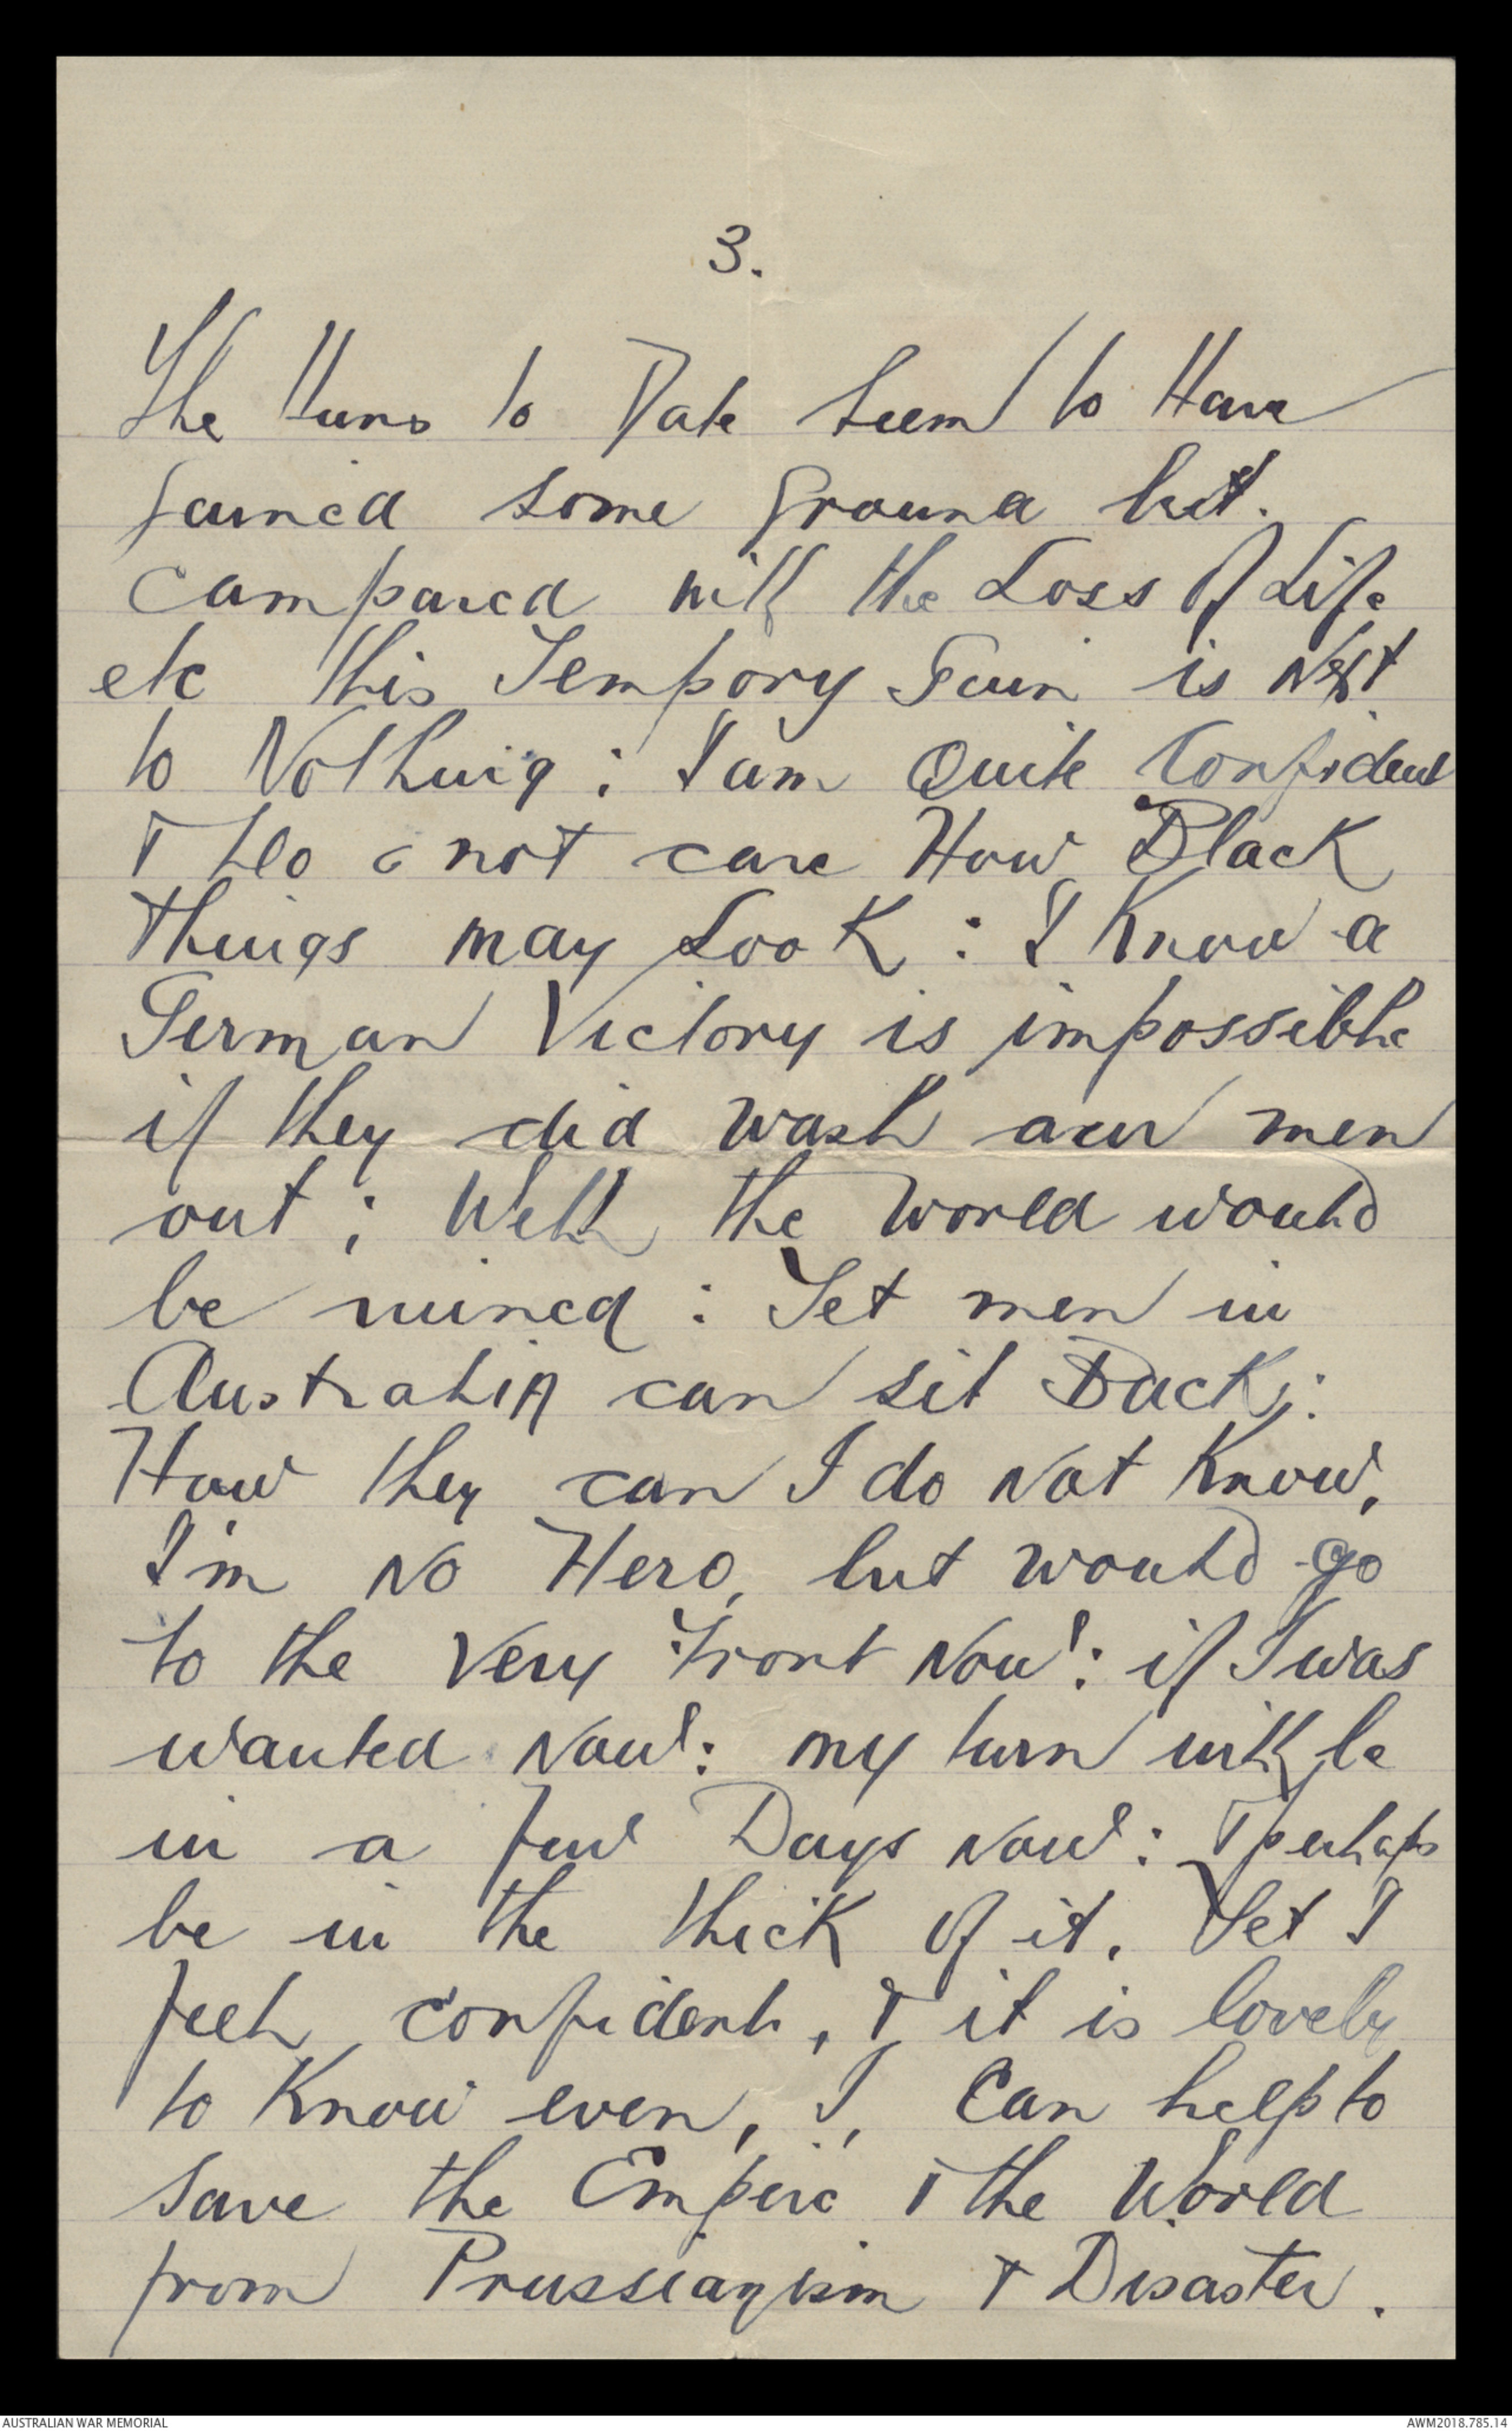 3.
The Huns to Date seem to Have
gained some ground but.
compared with the Loss of Life
etc this Tempory Gain is Next
to Nothing: I am Quite Confident
& do not care How Black
things may Look: I Know a
German Victory is impossible
if they did wash our men
out; Well the world would
be ruined: Yet men in
Australia can sit Back;:
How they can I do Not Know,
I'm No Hero, but would go
to the Very Front Now!: if I was
wanted Now!: my turn will be
in a few Days Now!: & perhaps
be in the thick of it. Yet I
feel confident, & it is lovely
to Know even, I, Can help to
save the Empire & the World
from Prussianism & Disaster.
AUSTRALIAN WAR MEMORIAL
AWM2018.785.14